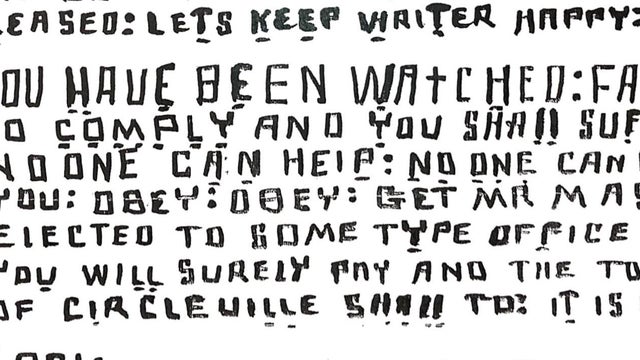 EASED: LETS KEEP WRITER HAPPY:
OU HAVE BEEN WATCHED: FA
O COMPLY AND YOU SHALL SUF
NO ONE CAN HELP: NO ONE CAN
YOU: OBEY: OBEY: GET MR MAS
ELECTED TO SOME TYPE OFFICE
YOU WILL SURELY PAY AND THE TO
OF CIRCLEVILLE SHALL TO: IT IS